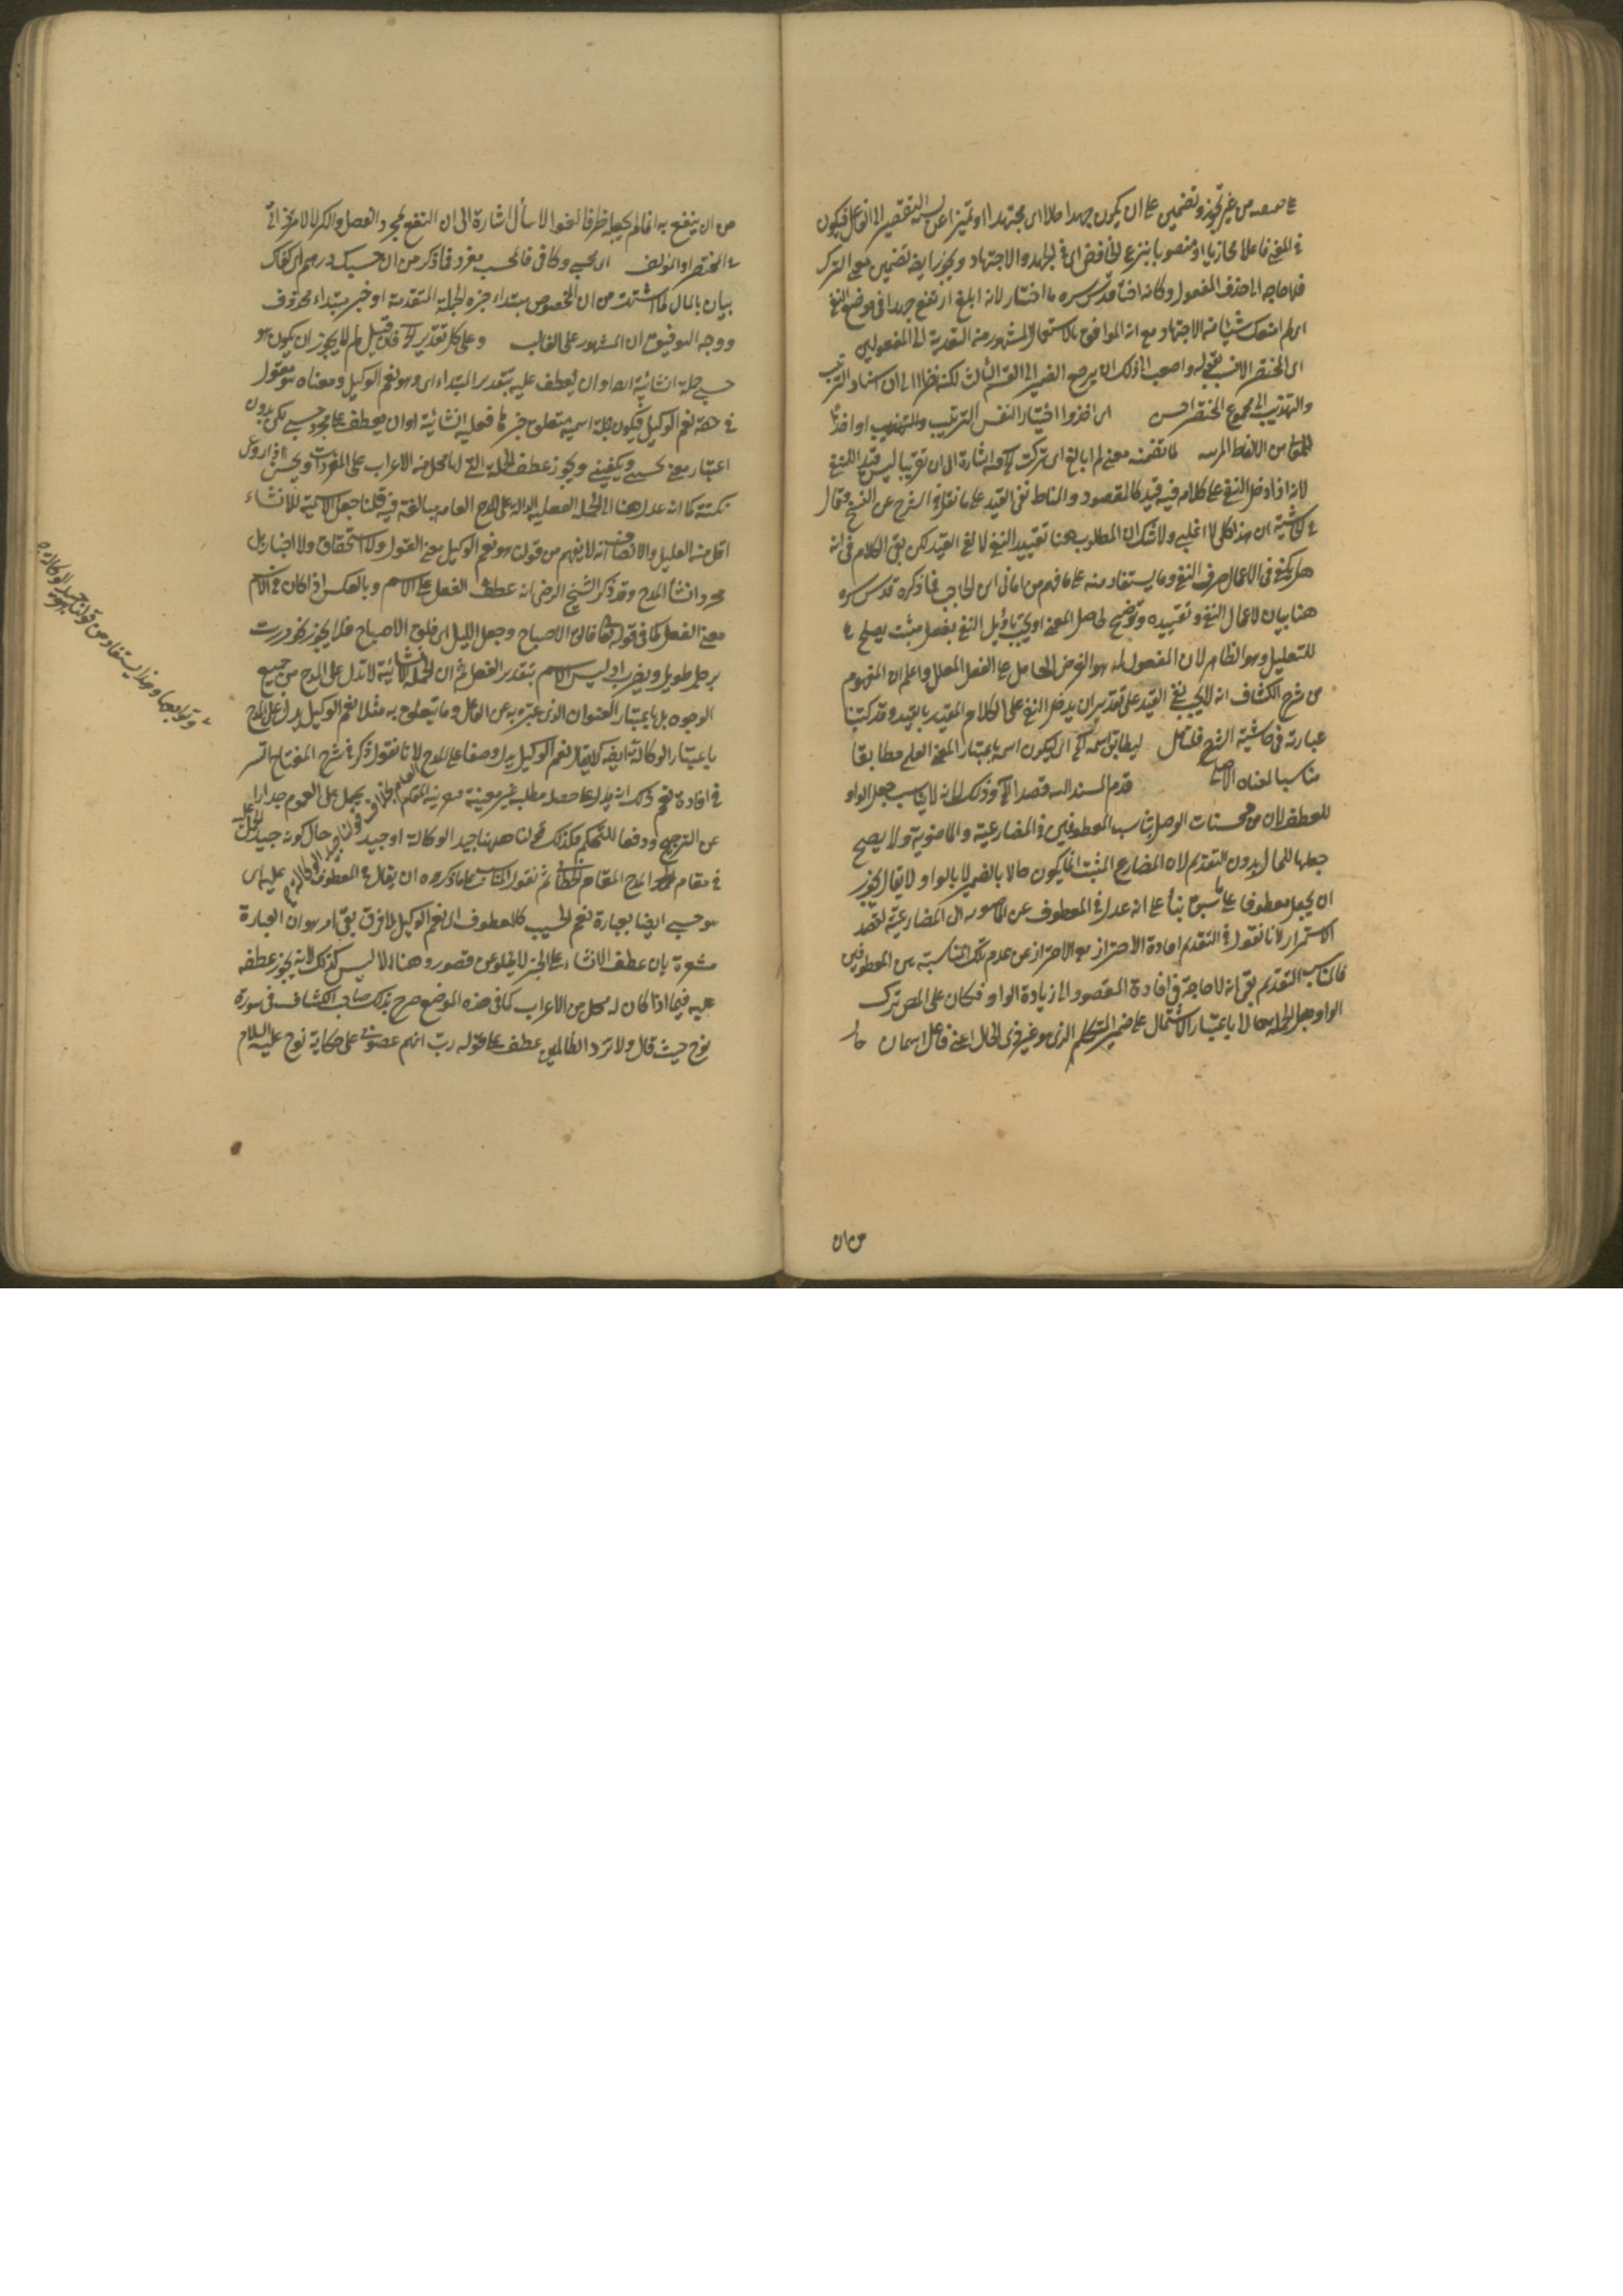 على معه من غير تجوز وتضمين على ان يكون جهدا حالا اى مجتهدا او تميزا عن نسبة التقصير الى الفاعل فيكون
فى المعنى فاعلا مجازيا او منصوبا بنزع الخافض اى فى الجهد والاجتهاد ويجوز ايضا تضمين معنى الترك
فلا حاجة الى حذف المفعول وكانه قدس سره ما اختار لانه ابلغ
اى لم امنعك شيئا من الاجتهاد مع انه الموافق بالاستعمال المشهور منه التعدية الى المفعولين
اى المختصر الانسب بقوله واصعب الى ذلك ان يرجع الضمير الى القسم الثالث لكنه نظر الى ان اسناد الترتيب
والتهذيب الى مجموع المختصر احسن اى اخذوا اختيار النفس الترتيب والتهذيب
لما تضمنه معنى لم ابالغ اى تركت اه فيه اشارة الى ان تقريبا ليس قيد اللنفى
لانه اذا دخل النفى على كلام فيه قيد كالمقصود والمناط نفى القيد على ما نقل فى الشرح عن الشيخ فقال
فى الحاشية ان هذا كلى لا اغلبى ولا شك ان المطلوب هنا تقييد النفى لا نفى القيد لكن بقى الكلام فى انه
هل يكفى فى الاعمال حرف النفى وما يستفاد منه على ما فهم من امالى ابن الحاجب فما ذكره قدس سره
هنا بيان لاعمال النفى وتقييده وتوضيح لحاصل المعنى او يجب تأويل النفى بفعل مثبت يصلح
للتعليل وهو الظاهر لان المفعول له هو الغرض الحامل على الفعل المعلل واعلم ان المفهوم
من شرح الكشاف انه لا يجب نفى القيد على تقدير ان يدخل النفى على الكلام المقيد بالقيد وقد كتبنا
عبارته فى حاشية الشرح فليتأمل ليطابق اسمه اه اى ليكون اسمه باعتبار المعنى العلمى مطابقا
مناسبا لمعناه الاصلى قدم المسند اليه قصدا اه وذلك لانه لا يناسب جعل الواو
للعطف لان من محسنات الوصل تناسب المعطوفين فى المضارعية والماضوية ولا يصح
جعلها للحال بدون التقديم لان المضارع المثبت انما يكون حالا بالضمير لا بالواو لا يقال يجوز
ان يجعل معطوفا على ما سبق بناء على انه عدل فى المعطوف عن الماضوية الى المضارعية لقصد
الاستمرار لانا نقول فى التقديم افادة الاحتراز مع الاحتراز عن عدم تلك المناسبة بين المعطوفين
فالمناسب التقديم بقى انه لا حاجة فى افادة المقصود الى زيادة الواو فكان على المص ترك
الواو وجعل الجملة حالا باعتبار الاشتمال على ضمير المتكلم الذى هو غير ذى الحال اعنى فاعل اسأل حال
من ان
من ان ينفع به انما لم يجعله ظرفا لغوا لاسأل اشارة الى ان النفع بمجرد الفضل والكرم
فى المختصر او المؤلف اى محسبى وكافى فالحسب مفرد فما ذكر من ان حسبك درهم اى كفاك
بيان بالمآل لما اشتهر من ان المخصوص مبتداء خبره الجملة المتقدمة او خبر مبتداء محذوف
ووجه التوفيق ان المشهور على الغالب وعلى كل تقدير اه فان قيل لم لا يجوز ان يكون هو
حسبى جملة انشائية اه او ان يعطف عليه بتقدير المبتداء اى وهو نعم الوكيل ومعناه هو مقول
فى حقه نعم الوكيل فيكون جملة اسمية متعلق خبرها فعلية انشائية او ان يعطف على مجرد حسبى لكن بدون
اعتبار معنى يحسبنى ويكفينى ويجوز عطف الجملة التى لها محل من الاعراب على المفردات ويحسن اذا روعى
نكتة كما انه عدل هنا الى الجملة الفعلية الدالة على المدح العام مبالغة فيه قلنا جعل الاسمية للانشاء
اقل من القليل والانصاف انه لا يفهم من قولنا هو نعم الوكيل معنى المقول والاستحقاق ولا اخبار بل
مجرد انشاء المدح وقد ذكر الشيخ الرضى انه عطف الفعل على الاسم وبالعكس اذا كان فى الاسم
معنى الفعل كما فى قوله تعالى فالق الاصباح وجعل الليل اى فلق الاصباح فلا يجوز نحو مررت
برجل طويل ويضرب اذ ليس الاسم بتقدير الفعل ثم ان الجملة الانشائية لا تدل على المدح من جميع
الوجوه بل باعتبار العنوان الذى عبر به عن الفاعل وما يتعلق به مثلا نعم الوكيل يدل على المدح
باعتبار الوكالة ايضا لا يقال نعم الوكيل يدل وضعا على المدح لانا نقول ذكر فى شرح المفتاح
فى افادة نعم ذلك انه يدل على حصل مطلبه غير معينة يحمل على العموم حذرا
عن الترجيح ودفعا للتحكم فكذلك قولنا ههنا جيد الوكالة او جيد حال كونه
فى مقام المدح المقام الخطابى ثم نقول المناسب على ما ذكروه ان يقال فى المعطوف عليه اى
هو حسبى ايضا بعبارة نعم الحسيب كالمعطوف اى نعم الوكيل لا فرق بقى امر هو ان العبارة
مشعرة بان عطف الانشاء على الخبر لا يخلو عن قصور وهناك ليس كذلك لانه يجوز عطفه
عليه فيما اذا كان له محل من الاعراب كما فى هذه الموضع صرح بذلك صاحب الكشاف فى سورة
نوح حيث قال ولا تزد الظالمين عطف على قوله رب انهم عصونى على حكاية نوح عليه السلام
وتوابعها وهذا يستفاد من قولنا جيد الوكالة